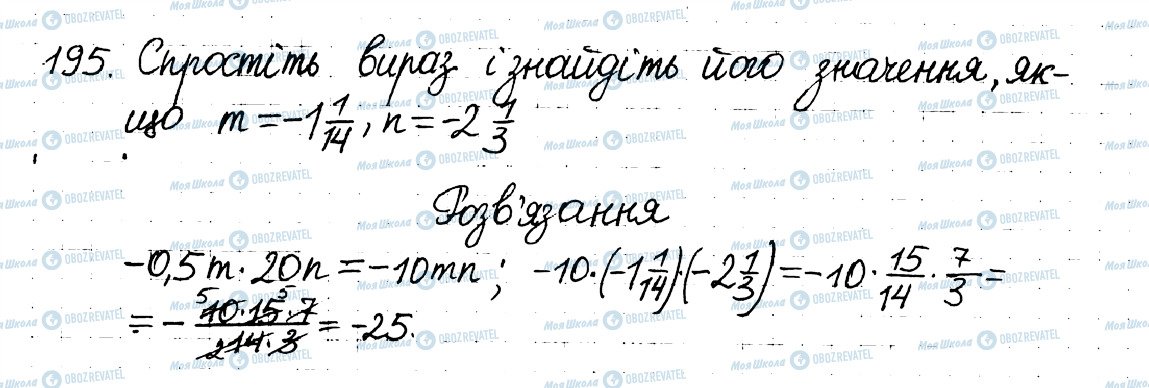 195. Спростіть вираз і знайдіть його значення, як-
що m = -1 1/14, n = -2 1/3
Розв'язання
-0,5m · 20n = -10mn; -10·(-1 1/14)·(-2 1/3) = -10 · 15/14 · 7/3 =
= - 10·15·7/14·3 = -25.